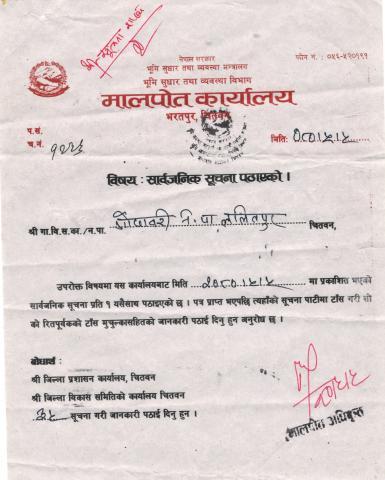 नेपाल सरकार
भूमि सुधार तथा व्यवस्था मन्त्रालय
भूमि सुधार तथा व्यवस्था विभाग
फोन नं. : ०५६-५२०१११
मालपोत कार्यालय
भरतपुर, चितवन
प.सं.
च.नं.
मिति: २०८०।५।५
विषय: सार्वजनिक सूचना पठाएको ।
श्री गा.वि.स.का./न.पा. गोदावरी न.पा ललितपुर चितवन,
उपरोक्त विषयमा यस कार्यालयबाट मिति २०८०।५।५ मा प्रकाशित भएको
सार्वजनिक सूचना प्रति १ यसैसाथ पठाइएको छ । पत्र प्राप्त भएपछि त्यहाँको सूचना पाटीमा टाँस गरी सो
को रितपूर्वकको टाँस मुचुल्कासहितको जानकारी पठाई दिनु हुन अनुरोध छ ।
बोधार्थ:
श्री जिल्ला प्रशासन कार्यालय, चितवन
श्री जिल्ला विकास समितिको कार्यालय चितवन
सूचना गरी जानकारी पठाई दिनु हुन ।
मालपोत अधिकृत